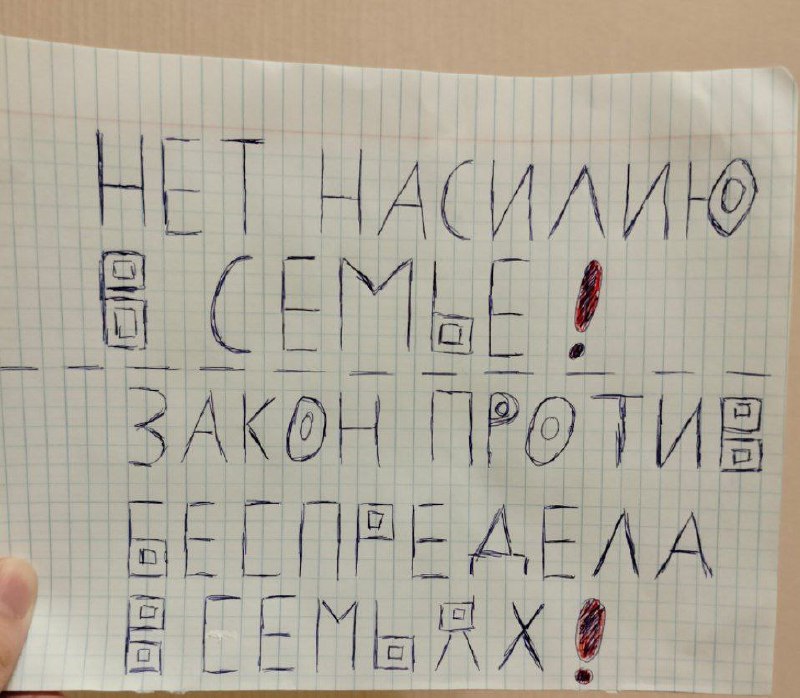 НЕТ НАСИЛИЮ
В СЕМЬЕ!
ЗАКОН ПРОТИВ
БЕСПРЕДЕЛА
В СЕМЬЯХ!